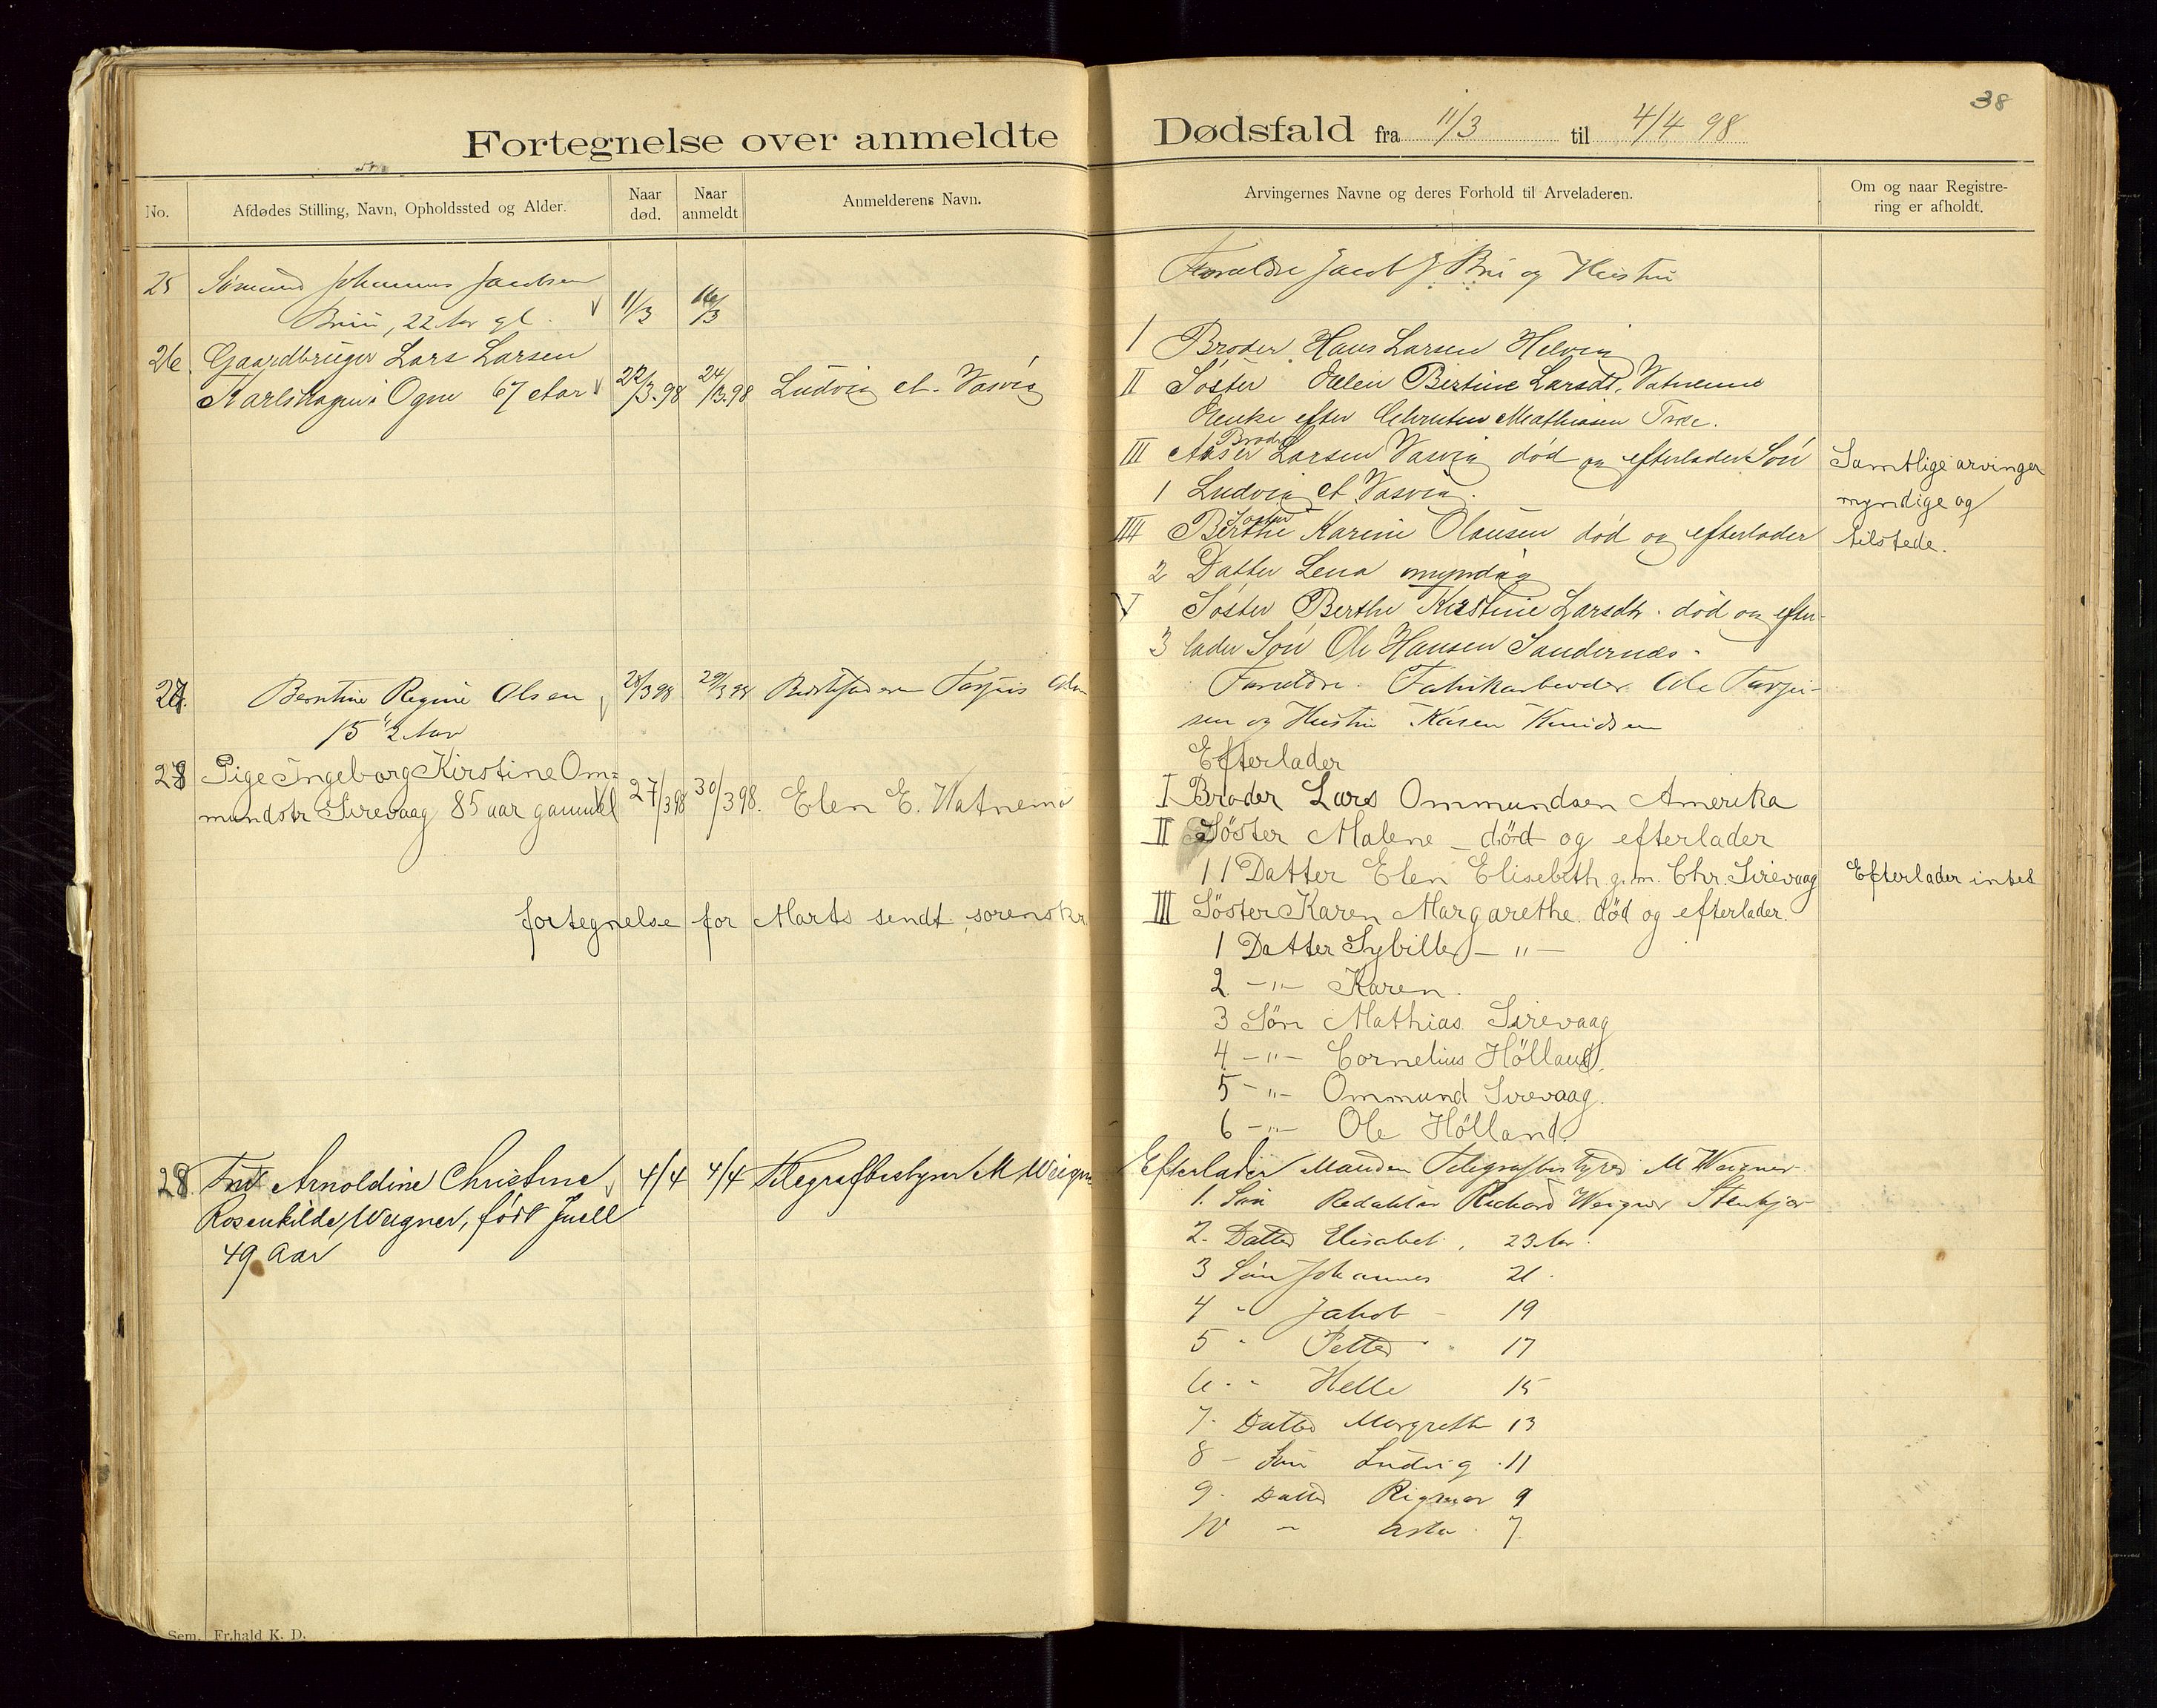 38
Fortegnelse over anmeldte Dødsfald fra 11/3 til 4/4 98
No.
Afdødes Stilling, Navn, Opholdssted og Alder.
Naar død.
Naar anmeldt
Anmelderens Navn.
Arvingernes Navne og deres Forhold til Arveladeren.
Om og naar Registre-
ring er afholdt.
25 Sømund Johannes Jacobsen
Brui, 22 Aar gl. 11/3 16/3
Forældre Jacob J. Bru og Hustru
26. Gaardbruger Lars Larsen
Karlshagen i Ogne 67 Aar 22/3.98 24/3.98 Ludvig A. Vasvig
I Broder Hans Larsen Helvig
II Søster Elen Bertine Larsdt. Vatnemo
Enke efter Christen Mathiasen Træe.
III Broder Larsen Vasvig død og efterlader Søn
1 Ludvig A. Vasvig.
IIII Søster Berthe Karine Olausen død og efterlader
2 Datter Lena myndig
V Søster Berthe Kirstine Larsdtr. død og efter-
3 lader Søn Ole Hansen Sandernæs.
Samtlige arvinger
myndige og
tilstede.
27. Berntine Regine Olsen
15 1/2 Aar 28/3 98 29/3 98 Bedstefaderen Torjus Olsen
Forældre. Fabrikarbeider Ole Torju-
sen og Hustru Karen Knudsen
28 Pige Ingeborg Kirstine Om=
mundstr Sirevaag 85 aar gammel 27/3 98 30/3 98. Elen E. Watnemo
Efterlader
I Broder Lars Ommundsen Amerika
II Søster Malene – død og efterlader
1 1 Datter Elen Elisebeth g. m. Chr. Sirevaag
III Søster Karen Margarethe. død og efterlader.
1 Datter Sybille – " –
2 – " – Karen.
3 Søn Mathias Sirevaag
4 – " – Cornelius Hölland.
5 – " – Ommund Sirevaag.
6 – " – Ole Hölland.
Efterlader intet
fortegnelse for Marts sendt sorenskr.
28. Fru Arnoldine Christine
Rosenkilde Weigner, født Juell
49 Aar 4/4 4/4 Telegrafbestyrer M Weigner
Efterlader Manden Telegrafbestyrer M Weigner
1. Søn Redaktør Richard Weigner Stenkjær
2. Datter Elisabet, 23 Aar.
3 Søn Johannes 21.
4 " Jakob – 19
5 " Petter " 17
6 " Helle 15
7. Datter Margrethe 13
8 – Søn Ludvig 11
9. Datter Rigmor 9
10 – Asta 7
Sem. Fr.hald K. D.